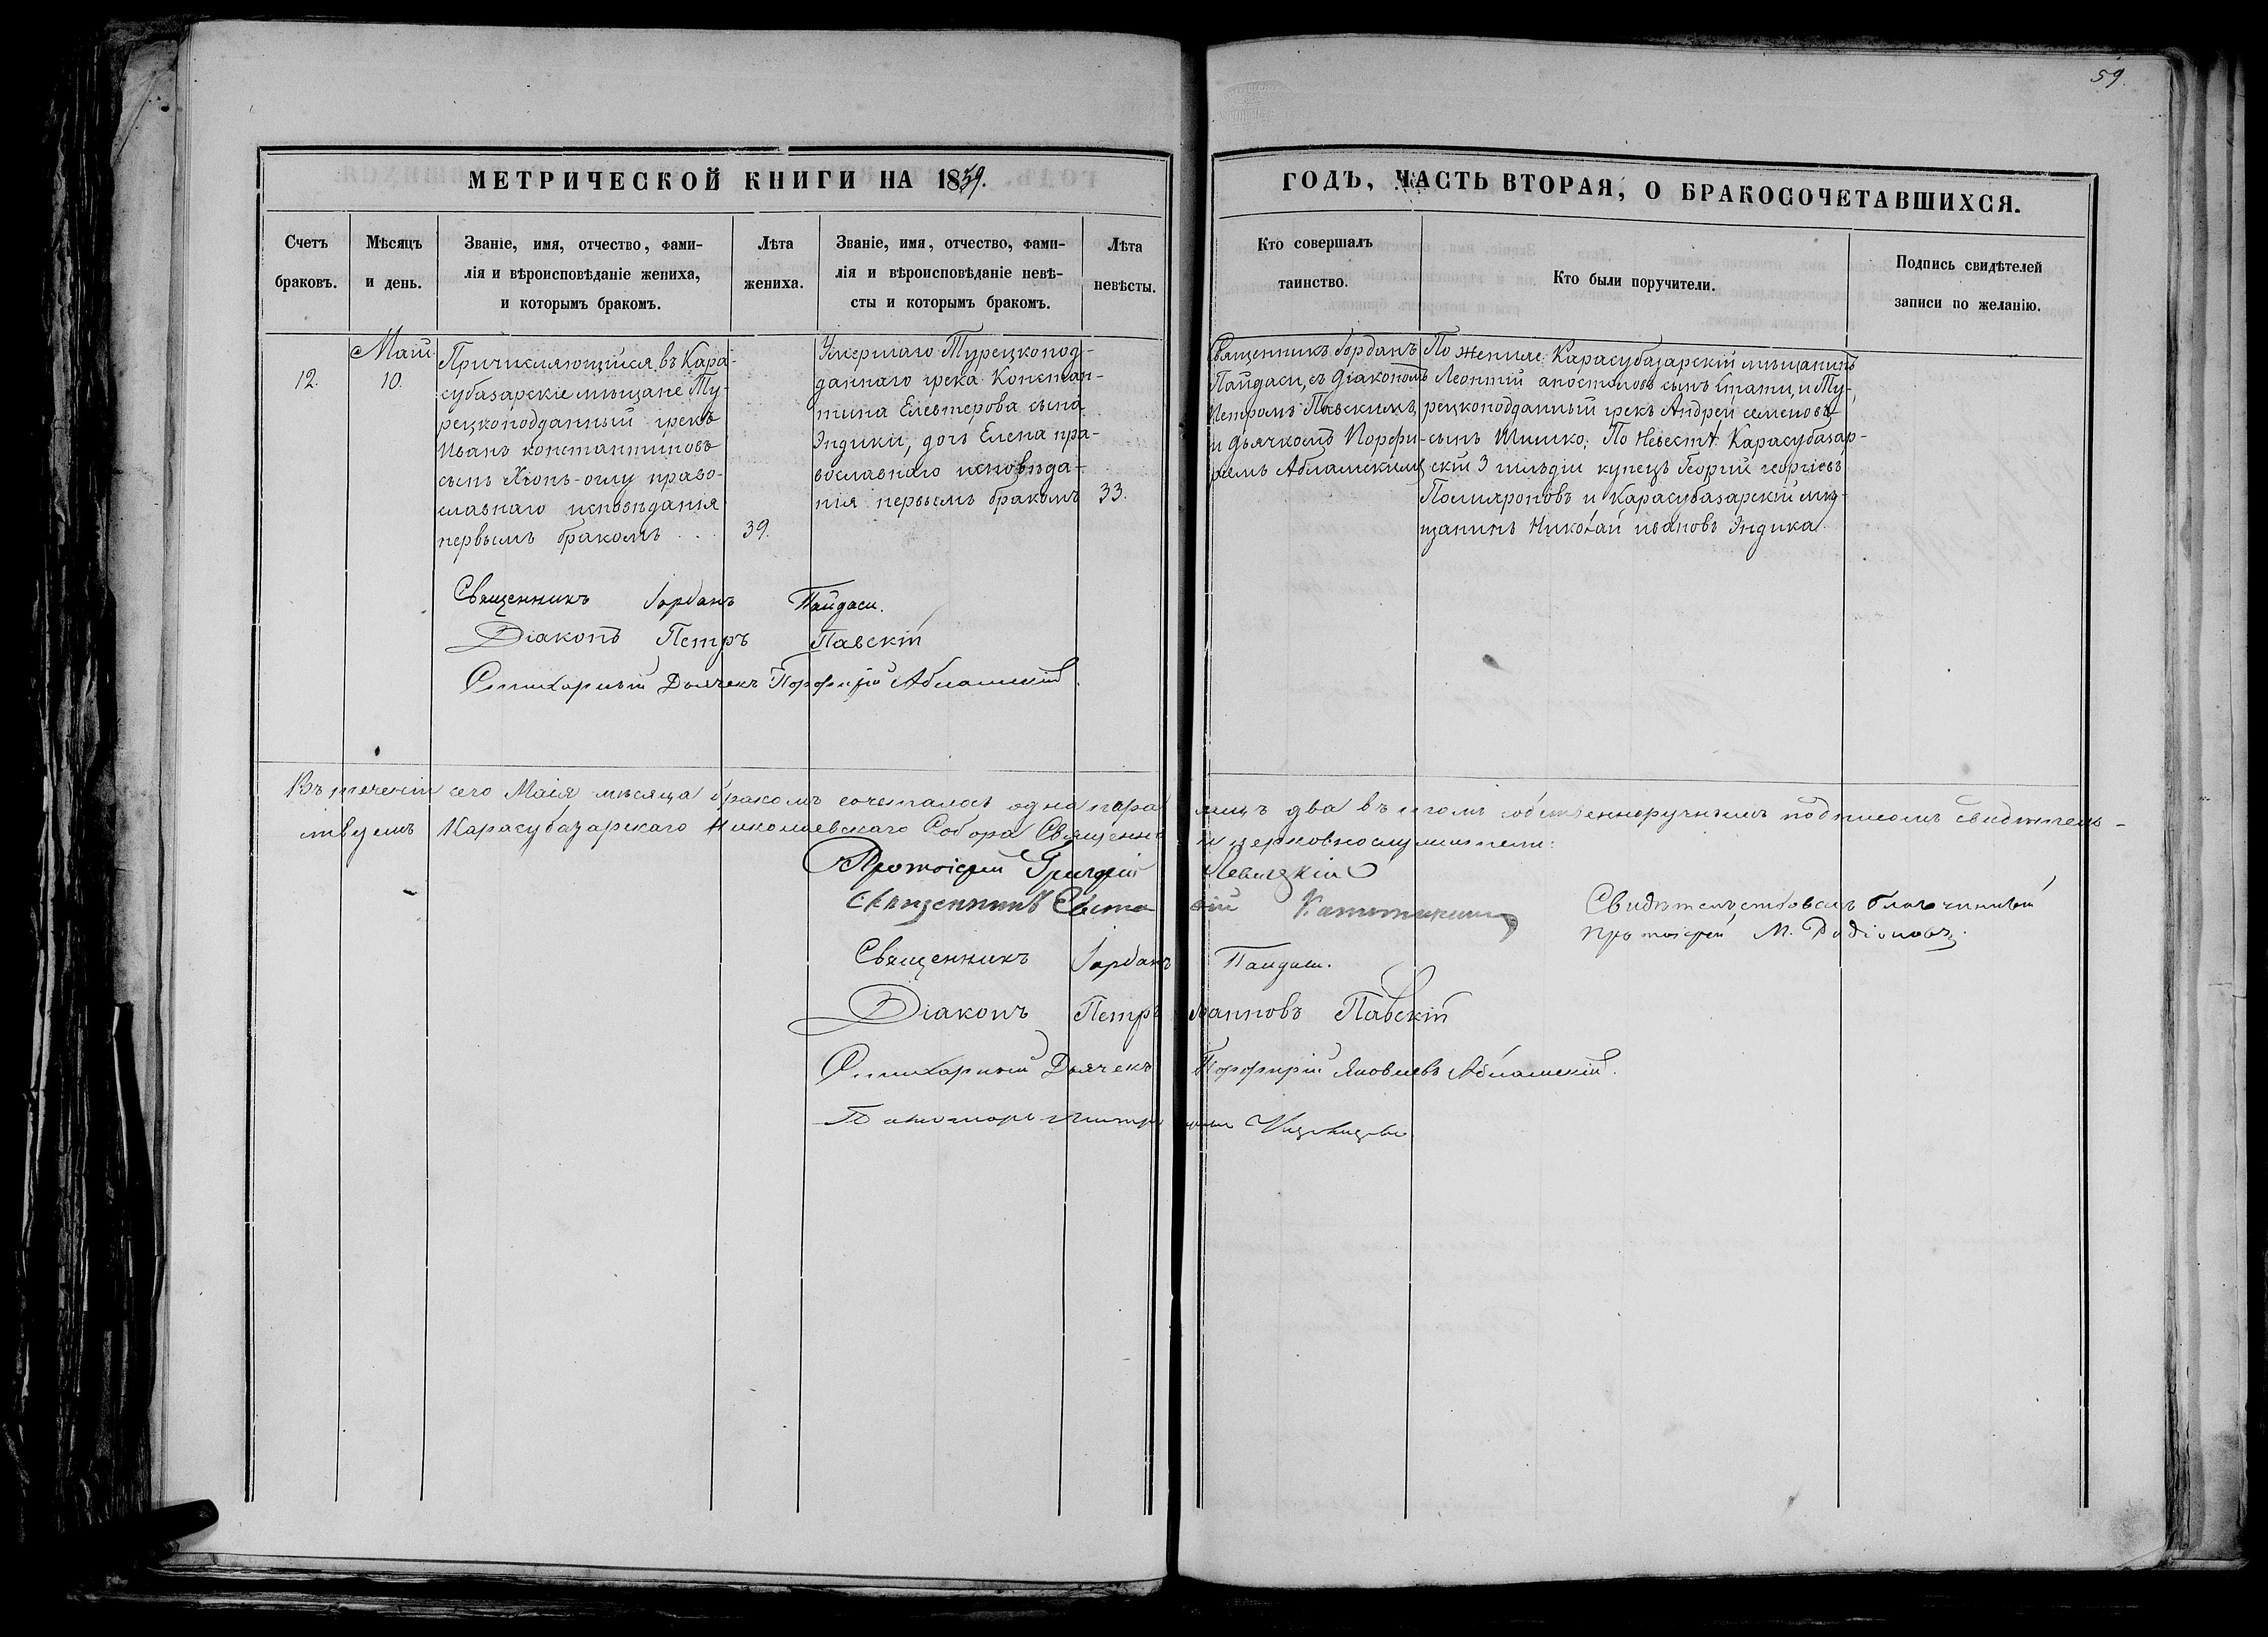 59.
МЕТРИЧЕСКОЙ КНИГИ НА 1859.
ГОДЪ, ЧАСТЬ ВТОРАЯ, О БРАКОСОЧЕТАВШИХСЯ.
Счетъ
браковъ.
Мѣсяцъ
и день.
Званіе, имя, отчество, фами-
лія и вѣроисповѣданіе жениха,
и которымъ бракомъ.
Лѣта
жениха.
Званіе, имя, отчество, фами-
лія и вѣроисповѣданіе невѣ-
сты и которымъ бракомъ.
Лѣта
невѣсты.
Кто совершалъ
таинство.
Кто были поручители.
Подпись свидѣтелей
записи по желанію.
12.
Маій
10.
Причисляющійся въ Кара-
субазарскіе мѣщане Ту-
рецкоподданный грекъ
Иванъ константиновъ
сынъ Хіонъ-оглу право-
славнаго исповѣданія
первымъ бракомъ
39.
Умершаго Турецкопод-
даннаго грека Констан-
тина Елевтерова сына
Эндики, дочь Елена пра-
вославнаго исповѣда-
нія первымъ бракомъ
33.
Священникъ Іорданъ
Пайдаси, съ діакономъ
Петромъ Павскимъ
и дьячкомъ Порфи-
ріемъ Абламскимъ
По женихѣ: Карасубазарскій мѣщанинъ
Леонтій апостоловъ сынъ Стати, и Ту-
рецкоподданный грекъ Андрей семеновъ
сынъ Шишко; По Невестѣ Карасубазар-
скій 3 гильдіи купецъ Георгій георгіевъ
Полихроновъ и Карасубазарскій мѣ-
щанинъ Николай ивановъ Эндика.
Священникъ Іорданъ Пайдаси.
Діаконъ Петръ Павскій
Стихарный Дьячекъ Порфирій Абламскій.
Въ теченіи сего Маія мѣсяца бракомъ сочеталось одна пара лицъ два въ чемъ собственноручнымъ подписомъ свидѣтель-
ствуемъ Карасубазарскаго Николаевскаго Собора Священно и церковнослужители:
Протоіерей Григорій Левицкій
Священникъ
Священникъ Іорданъ Пайдаси.
Діаконъ Петръ Іоанновъ Павскій
Стихарный Дьячекъ Порфирій Яковлевъ Абламскій.
Пономарь
Свидѣтельствовалъ благочинный
протоіерей М. Родіоновъ.